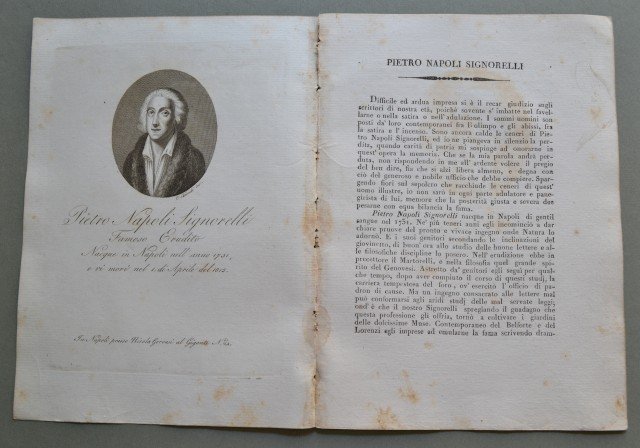 Pietro Napoli Signorelli
Famoso Erudito
Nacque in Napoli nell' anno 1731,
e vi morì nel 1. di Aprile del 1815.
In Napoli presso Nicola Gervasi al Gigante N. 23.
PIETRO NAPOLI SIGNORELLI
Difficile ed ardua impresa si è il recar giudizio sugli
scrittori di nostra età, poichè sovente s'imbatte nel favel-
larne o nella satira o nell'adulazione. I sommi uomini son
posti da' loro contemporanei fra l'olimpo e gli abissi, fra
la satira e l'incenso. Sono ancor calde le ceneri di Pie-
tro Napoli Signorelli, ed io ne piangeva in silenzio la per-
dita, quando carità di patria mi sospinge ad onorarne in
quest'opera la memoria. Che se la mia parola andrà per-
duta, non rispondendo in me all'ardente volere il pregio
del ben dire, fia che si alzi libera almeno, e degna con
ciò del generoso e nobile uffizio che debbe compiere. Spar-
gendo fiori sul sepolcro che racchiude le ceneri di quest'
uomo illustre, io non sarò in ogni parte adulatore e pane-
girista di lui, memore che la posterità giusta e severa dee
pesarne con equa bilancia la fama.
Pietro Napoli Signorelli nacque in Napoli di gentil
sangue nel 1731. Ne' più teneri anni egli incominciò a dar
chiare pruove del pronto e vivace ingegno onde Natura lo
adornò. E i suoi genitori secondando le inclinazioni del
giovincito, di buon'ora allo studio delle buone lettere e al-
le filosofiche discipline lo posero. Nell'erudizione ebbe in
precettore il Martorelli, e nella filosofia quel grande spi-
rito del Genovesi. Astretto da' genitori agli segui per qual-
che tempo, dopo aver compiuto il corso di questi studj, la
carriera tempestosa del foro, ov'esercitò l'officio di pa-
dron di cause. Ma un ingegno consacrato alle lettere mal
può conformarsi agli aridi studj delle mal servate leggi;
ond'è che il nostro Signorelli spregiando il guadagno che
questa professione gli offria, tornò a coltivare i giardini
delle dolcissime Muse. Contemporaneo del Belforte e del
Lorenzi agli imprese ad emularne la fama scrivendo dram-